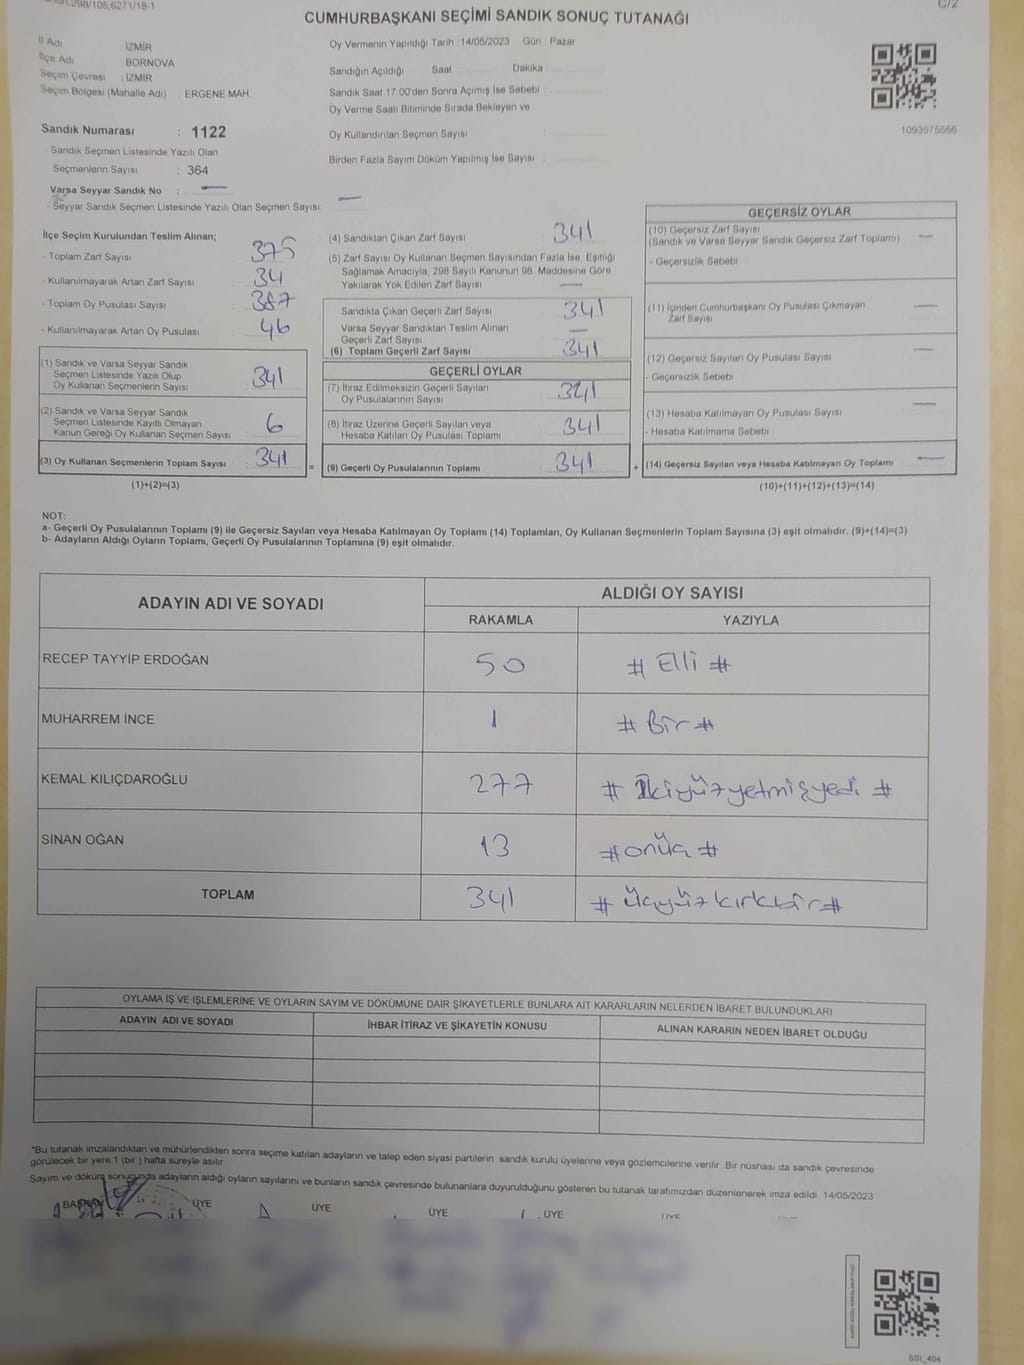 298/105,6271/18-1
C/2
CUMHURBAŞKANI SEÇİMİ SANDIK SONUÇ TUTANAĞI
İl Adı : İZMİR
İlçe Adı BORNOVA
Seçim Çevresi : İZMİR
Seçim Bölgesi (Mahalle Adı) : ERGENE MAH.
Sandık Numarası : 1122
- Sandık Seçmen Listesinde Yazılı Olan
Seçmenlerin Sayısı : 364
Varsa Seyyar Sandık No : —
- Seyyar Sandık Seçmen Listesinde Yazılı Olan Seçmen Sayısı —
Oy Vermenin Yapıldığı Tarih : 14/05/2023 Gün : Pazar
Sandığın Açıldığı Saat : Dakika :
Sandık Saat 17:00'den Sonra Açılmış İse Sebebi :
Oy Verme Saati Bitiminde Sırada Bekleyen ve
Oy Kullandırılan Seçmen Sayısı :
Birden Fazla Sayım Döküm Yapılmış İse Sayısı :
1093575556
İlçe Seçim Kurulundan Teslim Alınan;
- Toplam Zarf Sayısı : 375
- Kullanılmayarak Artan Zarf Sayısı : 34
- Toplam Oy Pusulası Sayısı : 387
- Kullanılmayarak Artan Oy Pusulası : 46
(1) Sandık ve Varsa Seyyar Sandık
Seçmen Listesinde Yazılı Olup
Oy Kullanan Seçmenlerin Sayısı : 341
(2) Sandık ve Varsa Seyyar Sandık
Seçmen Listesinde Kayıtlı Olmayan
Kanun Gereği Oy Kullanan Seçmen Sayısı : 6
(3) Oy Kullanan Seçmenlerin Toplam Sayısı : 341
(1)+(2)=(3)
(4) Sandıktan Çıkan Zarf Sayısı : 341
(5) Zarf Sayısı Oy Kullanan Seçmen Sayısından Fazla İse, Eşitliği
Sağlamak Amacıyla, 298 Sayılı Kanunun 98. Maddesine Göre
Yakılarak Yok Edilen Zarf Sayısı : —
Sandıkta Çıkan Geçerli Zarf Sayısı : 341
Varsa Seyyar Sandıktan Teslim Alınan
Geçerli Zarf Sayısı : —
(6) Toplam Geçerli Zarf Sayısı : 341
GEÇERLİ OYLAR
(7) İtiraz Edilmeksizin Geçerli Sayılan
Oy Pusulalarının Sayısı : 341
(8) İtiraz Üzerine Geçerli Sayılan veya
Hesaba Katılan Oy Pusulası Toplamı : 341
= (9) Geçerli Oy Pusulalarının Toplamı : 341
GEÇERSİZ OYLAR
(10) Geçersiz Zarf Sayısı
(Sandık ve Varsa Seyyar Sandık Geçersiz Zarf Toplamı) —
- Geçersizlik Sebebi
(11) İçinden Cumhurbaşkanı Oy Pusulası Çıkmayan
Zarf Sayısı —
(12) Geçersiz Sayılan Oy Pusulası Sayısı —
- Geçersizlik Sebebi
(13) Hesaba Katılmayan Oy Pusulası Sayısı —
- Hesaba Katılmama Sebebi
+ (14) Geçersiz Sayılan veya Hesaba Katılmayan Oy Toplamı —
(10)+(11)+(12)+(13)=(14)
NOT:
a- Geçerli Oy Pusulalarının Toplamı (9) ile Geçersiz Sayılan veya Hesaba Katılmayan Oy Toplamı (14) Toplamları, Oy Kullanan Seçmenlerin Toplam Sayısına (3) eşit olmalıdır. (9)+(14)=(3)
b- Adayların Aldığı Oyların Toplamı, Geçerli Oy Pusulalarının Toplamına (9) eşit olmalıdır.
ADAYIN ADI VE SOYADI ALDIĞI OY SAYISI
RAKAMLA YAZIYLA
RECEP TAYYİP ERDOĞAN 50 # Elli #
MUHARREM İNCE 1 # Bir #
KEMAL KILIÇDAROĞLU 277 # İkiyüzyetmişyedi #
SİNAN OĞAN 13 # onüç #
TOPLAM 341 # üçyüzkırkbir #
OYLAMA İŞ VE İŞLEMLERİNE VE OYLARIN SAYIM VE DÖKÜMÜNE DAİR ŞİKAYETLERLE BUNLARA AİT KARARLARIN NELERDEN İBARET BULUNDUKLARI
ADAYIN ADI VE SOYADI İHBAR İTİRAZ VE ŞİKAYETİN KONUSU ALINAN KARARIN NEDEN İBARET OLDUĞU
*Bu tutanak imzalandıktan ve mühürlendikten sonra seçime katılan adayların ve talep eden siyasi partilerin sandık kurulu üyelerine veya gözlemcilerine verilir. Bir nüshası da sandık çevresinde
görülecek bir yere 1 (bir) hafta süreyle asılır.
Sayım ve döküm sonucunda adayların aldığı oyların sayılarını ve bunların sandık çevresinde bulunanlara duyurulduğunu gösteren bu tutanak tarafımızdan düzenlenerek imza edildi. 14/05/2023
BAŞKAN ÜYE ÜYE ÜYE ÜYE ÜYE
SSI_404